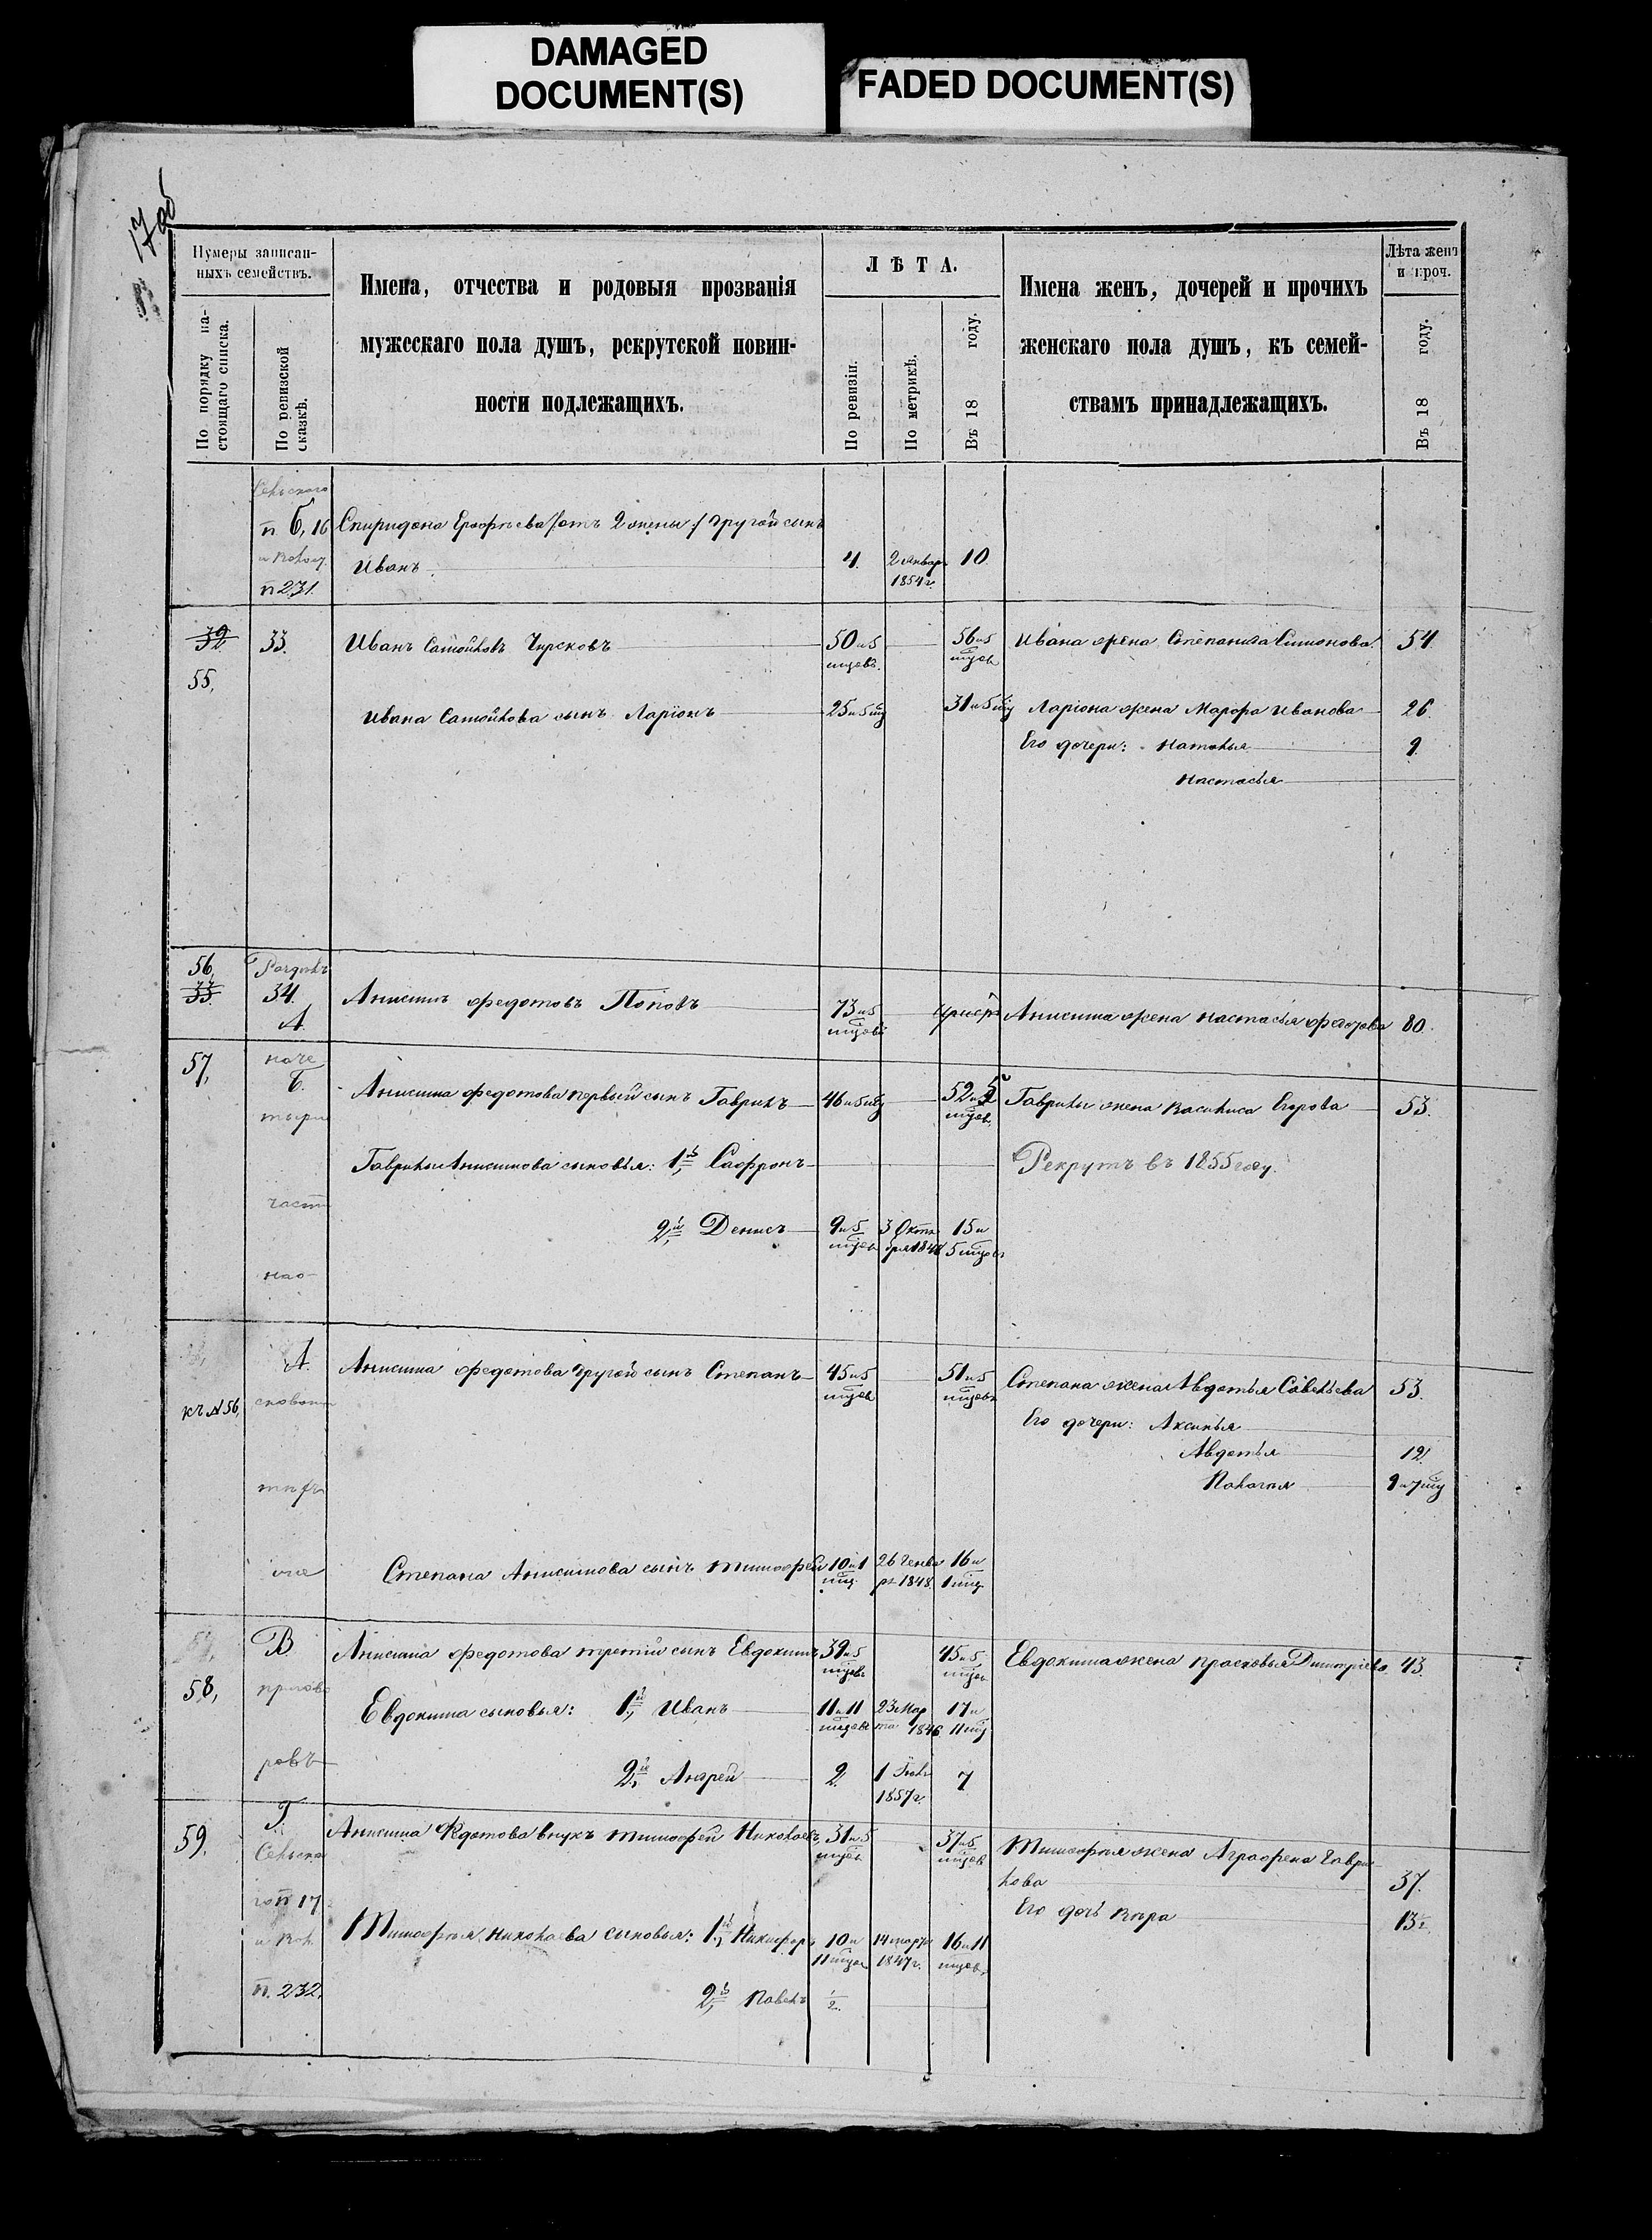 DAMAGED
DOCUMENT(S)
FADED DOCUMENT(S)
17об
Нумеры записан-
ныхъ семействъ.
По порядку на-
стоящаго списка.
По ревизской
сказкѣ.
Имена, отчества и родовыя прозванія
мужескаго пола душъ, рекрутской повин-
ности подлежащихъ.
ЛѢТА.
По ревизіи.
По метрикѣ.
Въ 18 году.
Имена женъ, дочерей и прочихъ
женскаго пола душъ, къ семей-
ствамъ принадлежащихъ.
Лѣта женъ
и проч.
Въ 18 году.
Сельскаго
п 6, 16 Спиридона Ерофѣева /отъ 2 жены:/ другой сынъ
и Волос.
Иванъ 4. 2 Январ. 1854 г. 10
п 231.
32 33. Иванъ Самойловъ Чирсковъ 50 и 5 мцовъ. 56 и 5 мцов Ивана жена Степанида Симонова. 54.
55,
Ивана Самойлова сынъ Ларіонъ 25 и 5 мц 31 и 5 мц Ларіона жена Марфа Иванова 26.
Его дочери: Наталья 9.
Настасья
56, Раздѣлъ
33. 34. Анисимъ Федотовъ Поповъ 73 и 5 мцовъ Анисима жена Настасья Федотова 80.
А.
57, наче
Б. Анисима Федотова первый сынъ Гаврилъ 46 и 5 мц 52 и 5 мцов. Гаврилы жена Василиса Егорова 53.
тыри
Гаврилы Анисимова сыновья: 1й, Сафронъ Рекрутъ въ 1855 году.
част
2й, Денисъ 9 и 5 мцов 3 Октя бря 1848 15 и 5 мцовъ
нао
А. Анисима Федотова другой сынъ Степанъ 45 и 5 мцов 51 и 5 мцовъ Степана жена Авдотья Савельева 53.
къ № 56,
Его дочери: Аксинья
Авдотья 12.
Палагея 9 и 7 мц
Степана Анисимова сынъ Тимофей 10 и 1 мц. 26 Генва ря 1848. 16 и 1 мц.
В. Анисима Федотова третій сынъ Евдокимъ 39 и 5 мцовъ 45 и 5 мцов Евдокима жена Прасковья Димитріева 43.
58, пригов
Евдокима сыновья: 1й, Иванъ 11 и 11 мцовъ 23 Мар та 1846 17 и 11 мц
ровъ
2й, Андрей 2. 1 Іюл 1857 г. 7
59. Г. Анисима Федотова внукъ Тимофей Николаевъ, 31 и 5 мцов 37 и 5 мцов Тимофея жена Аграфена Гаври
Сельска
лова 37.
го п 17
Его дочь Вѣра 13½.
и Вол.
Тимофея Николаева сыновья: 1й, Никифоръ 10 и 11 мцов 14 марта 1847 г. 16 и 11 мцовъ
п. 232.
2й, Павелъ ½.